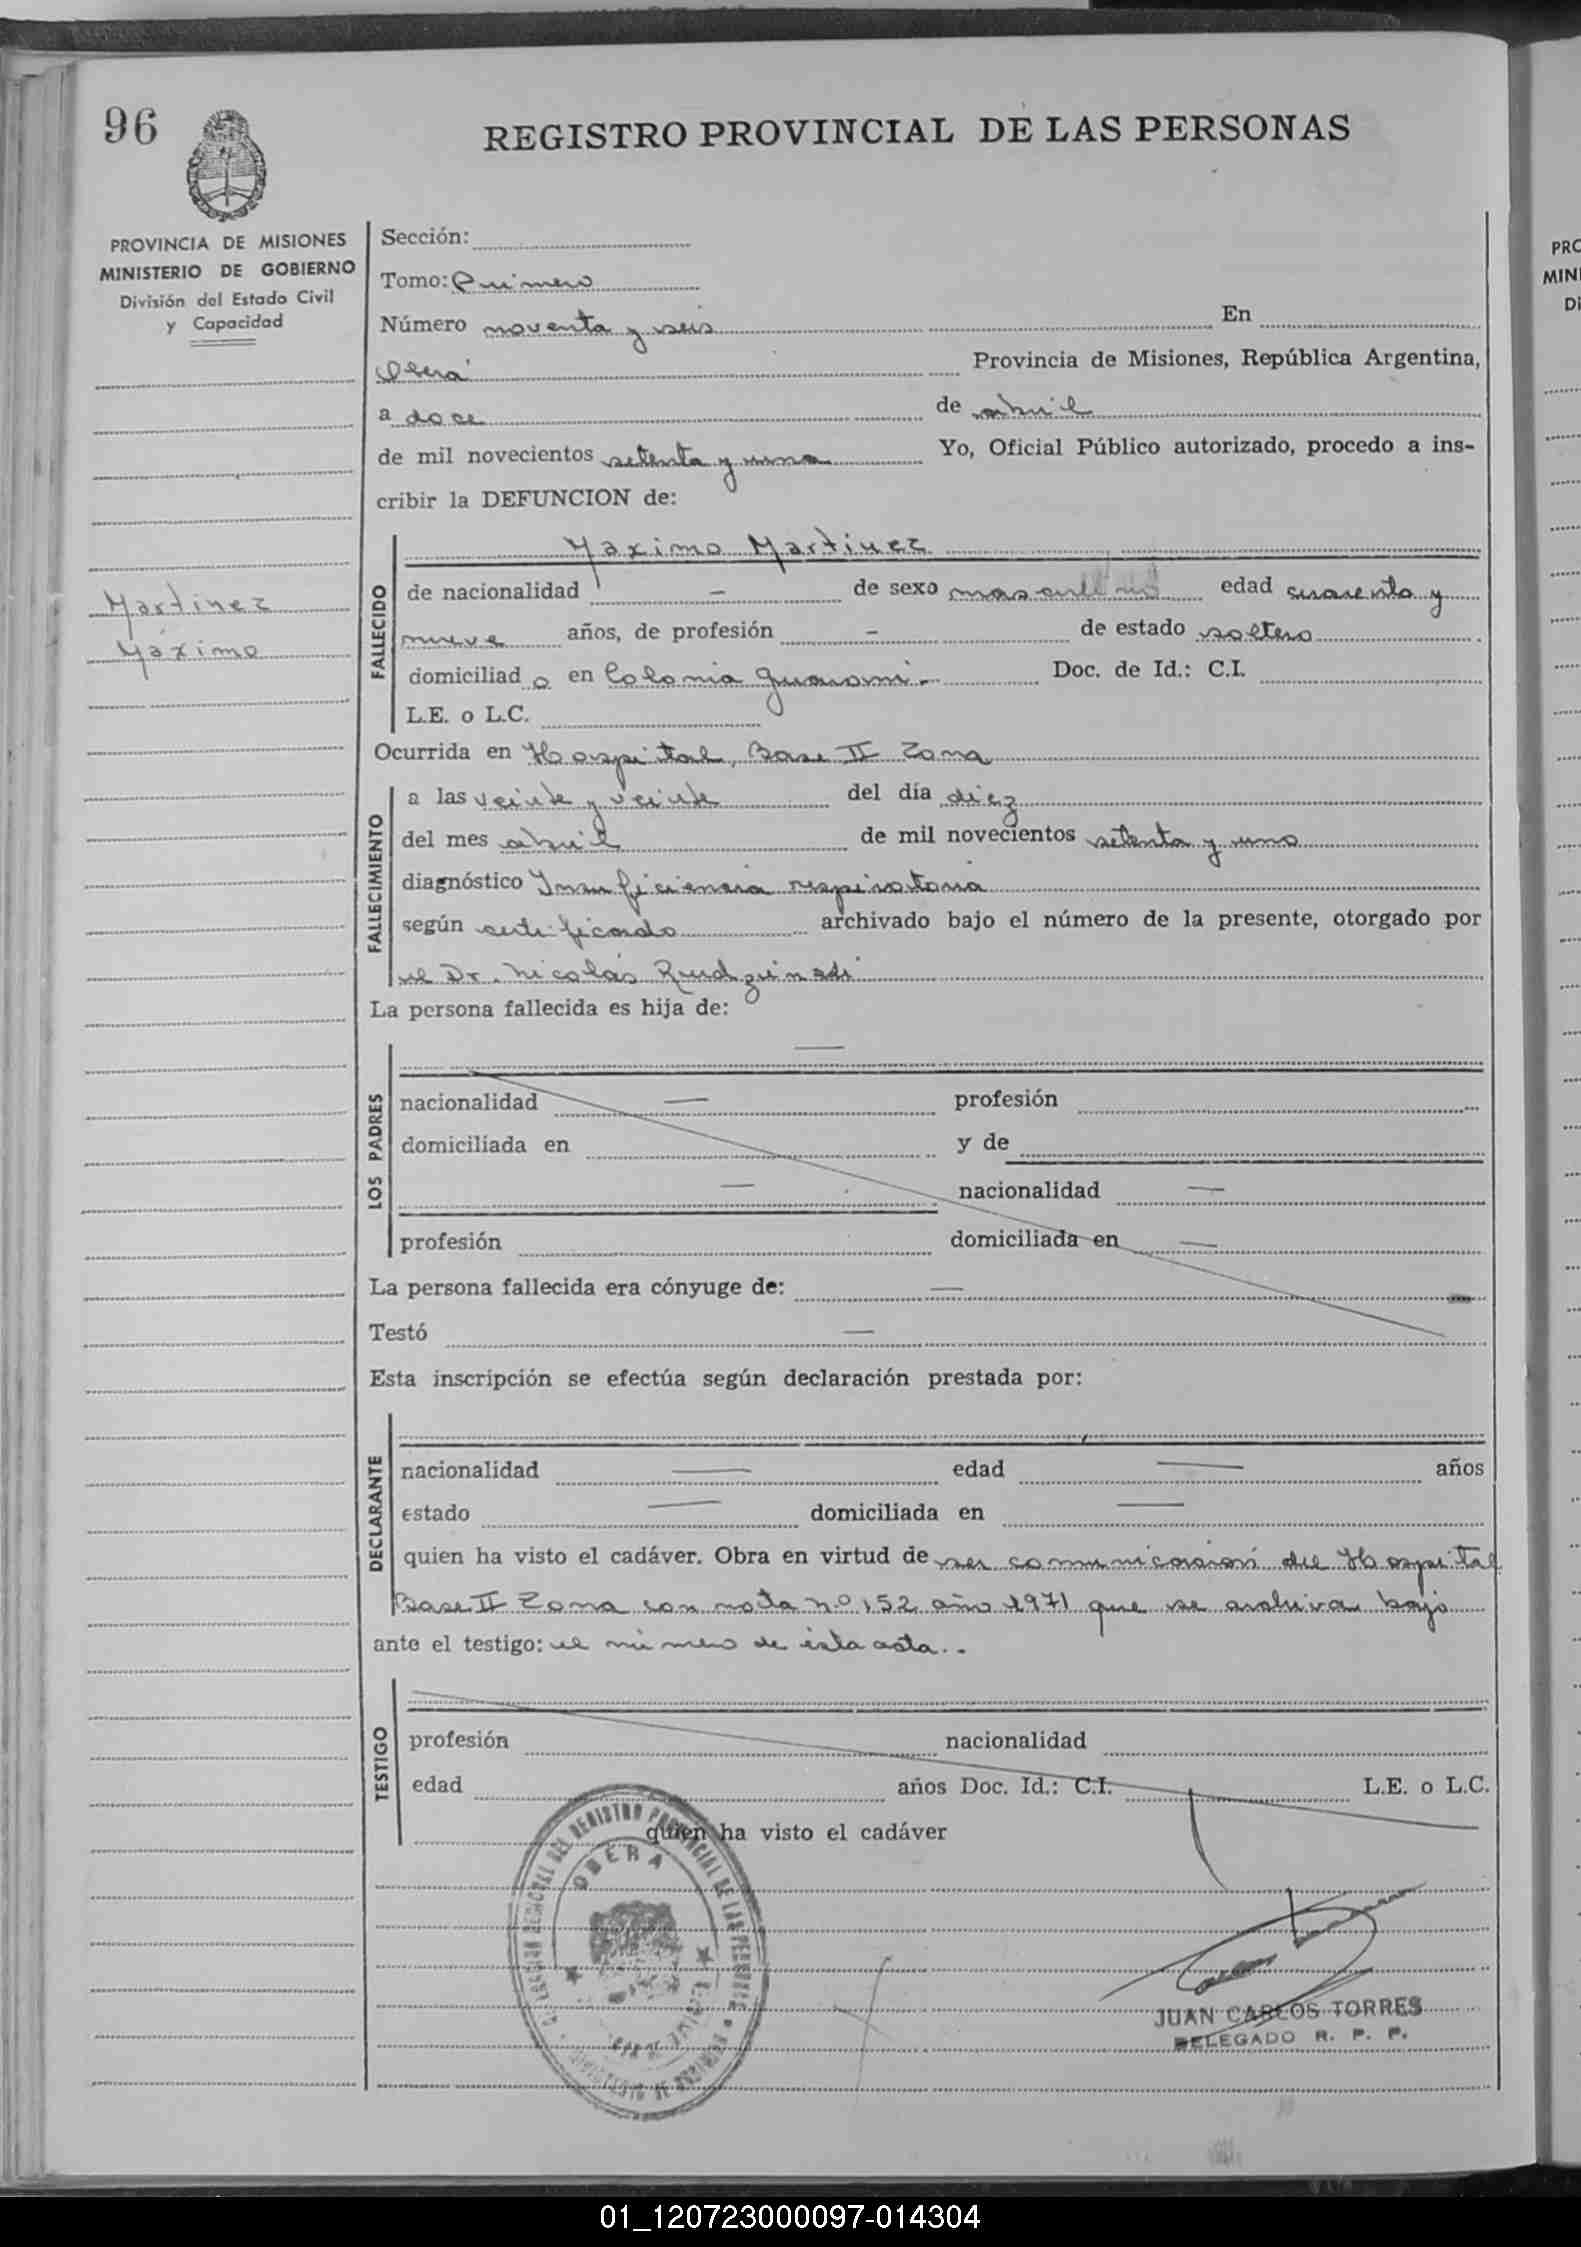 96
REGISTRO PROVINCIAL DE LAS PERSONAS
PROVINCIA DE MISIONES
MINISTERIO DE GOBIERNO
División del Estado Civil
y Capacidad
Martinez
Máximo
Sección:
Tomo: Primero
Número noventa y seis En
Oberá Provincia de Misiones, República Argentina,
a doce de abril
de mil novecientos setenta y uno Yo, Oficial Público autorizado, procedo a ins-
cribir la DEFUNCION de:
Maximo Martinez
FALLECIDO
de nacionalidad - de sexo masculino edad cuarenta y
nueve años, de profesión - de estado soltero
domiciliad o en Colonia Guarani.- Doc. de Id.: C.I.
L.E. o L.C.
Ocurrida en Hospital, Base II Zona
FALLECIMIENTO
a las veinte y veinte del día diez
del mes abril de mil novecientos setenta y uno
diagnóstico Insuficiencia respiratoria
según certificado archivado bajo el número de la presente, otorgado por
el Dr. Nicolás
La persona fallecida es hija de:
—
LOS PADRES
nacionalidad — profesión
domiciliada en y de
— nacionalidad —
profesión domiciliada en —
La persona fallecida era cónyuge de: —
Testó —
Esta inscripción se efectúa según declaración prestada por:
DECLARANTE
nacionalidad — edad — años
estado — domiciliada en —
quien ha visto el cadáver. Obra en virtud de ser comunicación del Hospital
Base II Zona con nota n.º 152 año 1971 que se archiva bajo
ante el testigo: el número de esta acta..
TESTIGO
profesión nacionalidad
edad años Doc. Id.: C.I. L.E. o L.C.
quien ha visto el cadáver
DEL REGISTRO PROVINCIAL DE LAS PERSONAS
OBERA
JUAN CARLOS TORRES
DELEGADO R. P. P.
PRO
MINI
Di
01_120723000097-014304